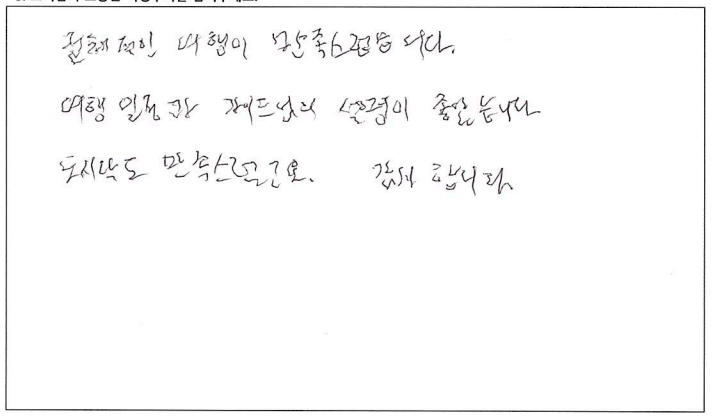 전체적인 여행이 만족스럽습니다.
여행 일정과 가이드님의 설명이 좋았습니다
도시락도 만족스럽고요. 감사 합니다.